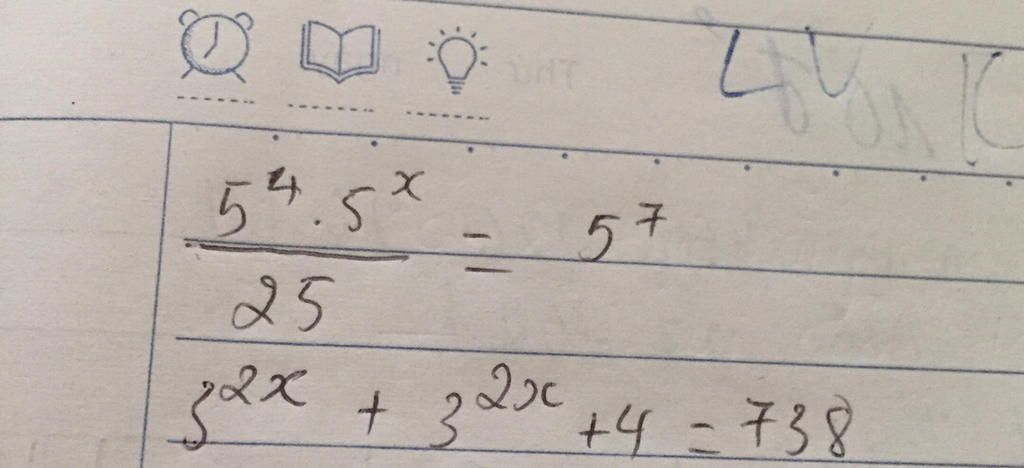 5^4 . 5^x / 25 = 5^7
3^2x + 3^2x + 4 = 738